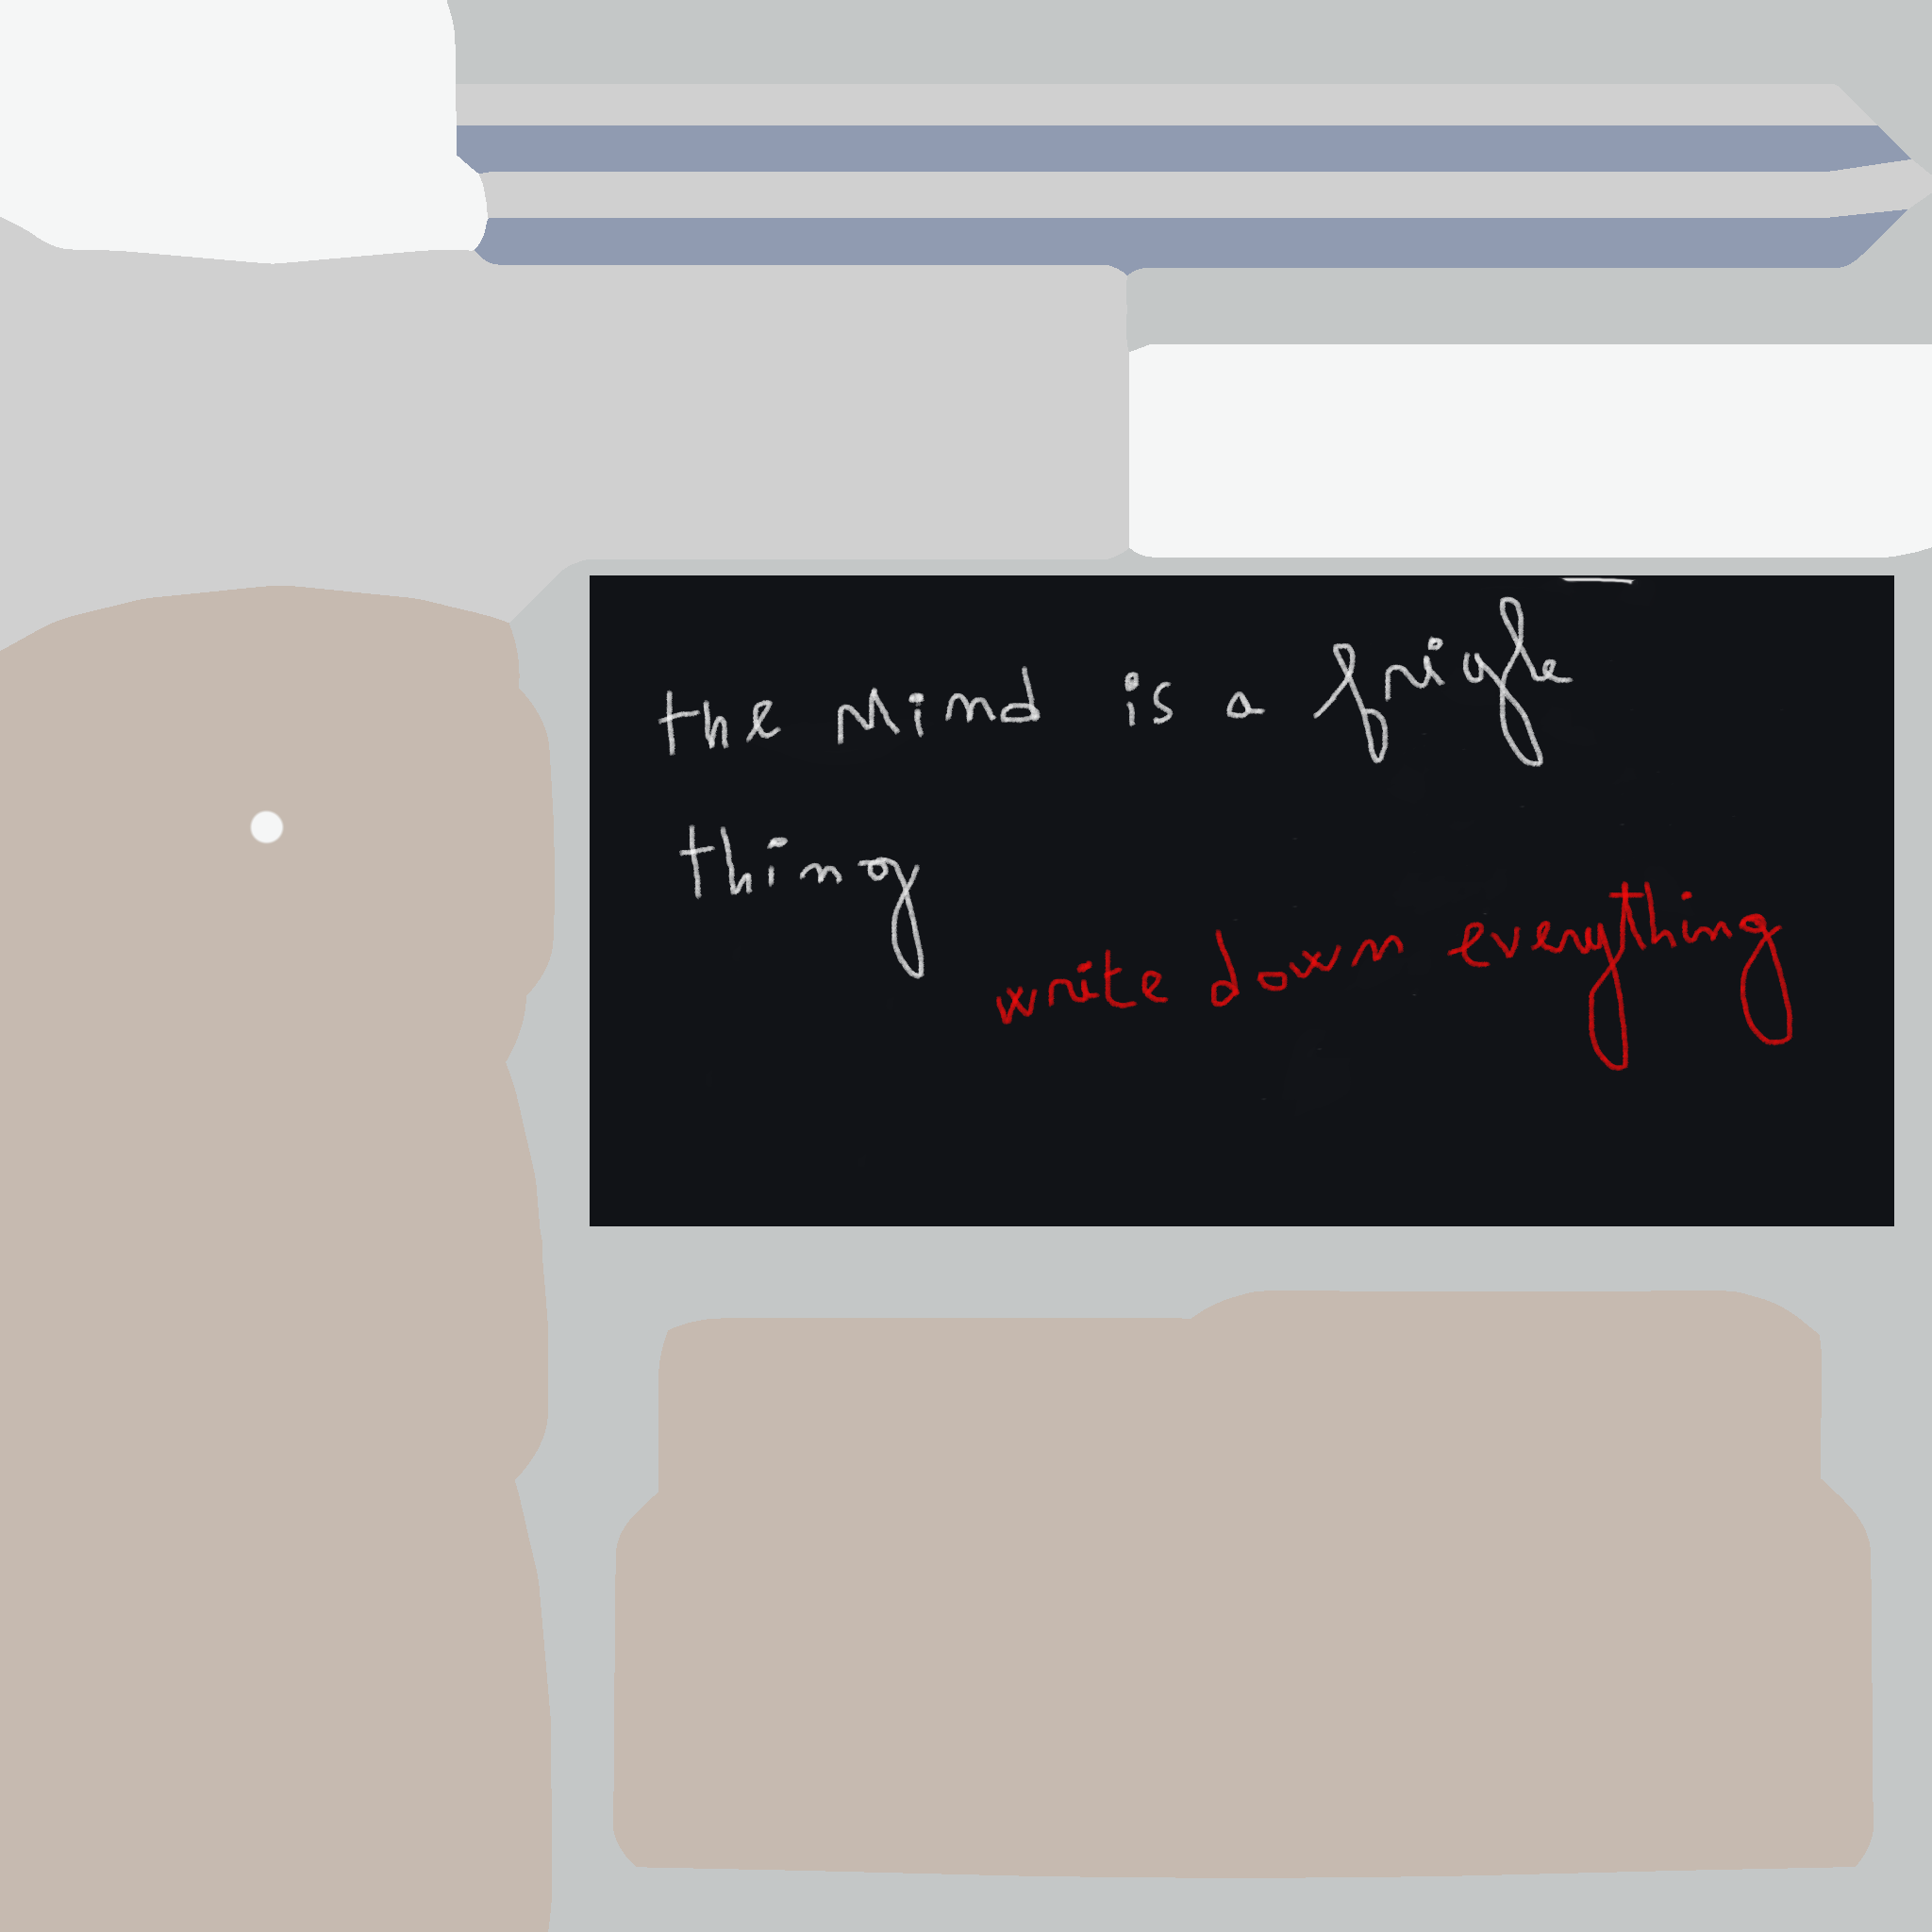 the Mind is a frigle
thing
write down everything